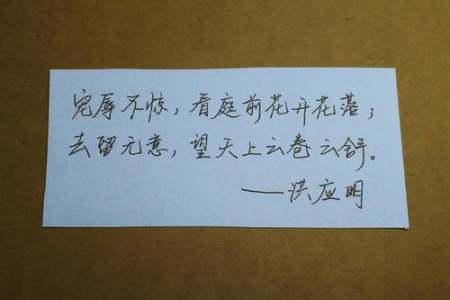 宠辱不惊，看庭前花开花落；
去留无意，望天上云卷云舒。
——洪应明